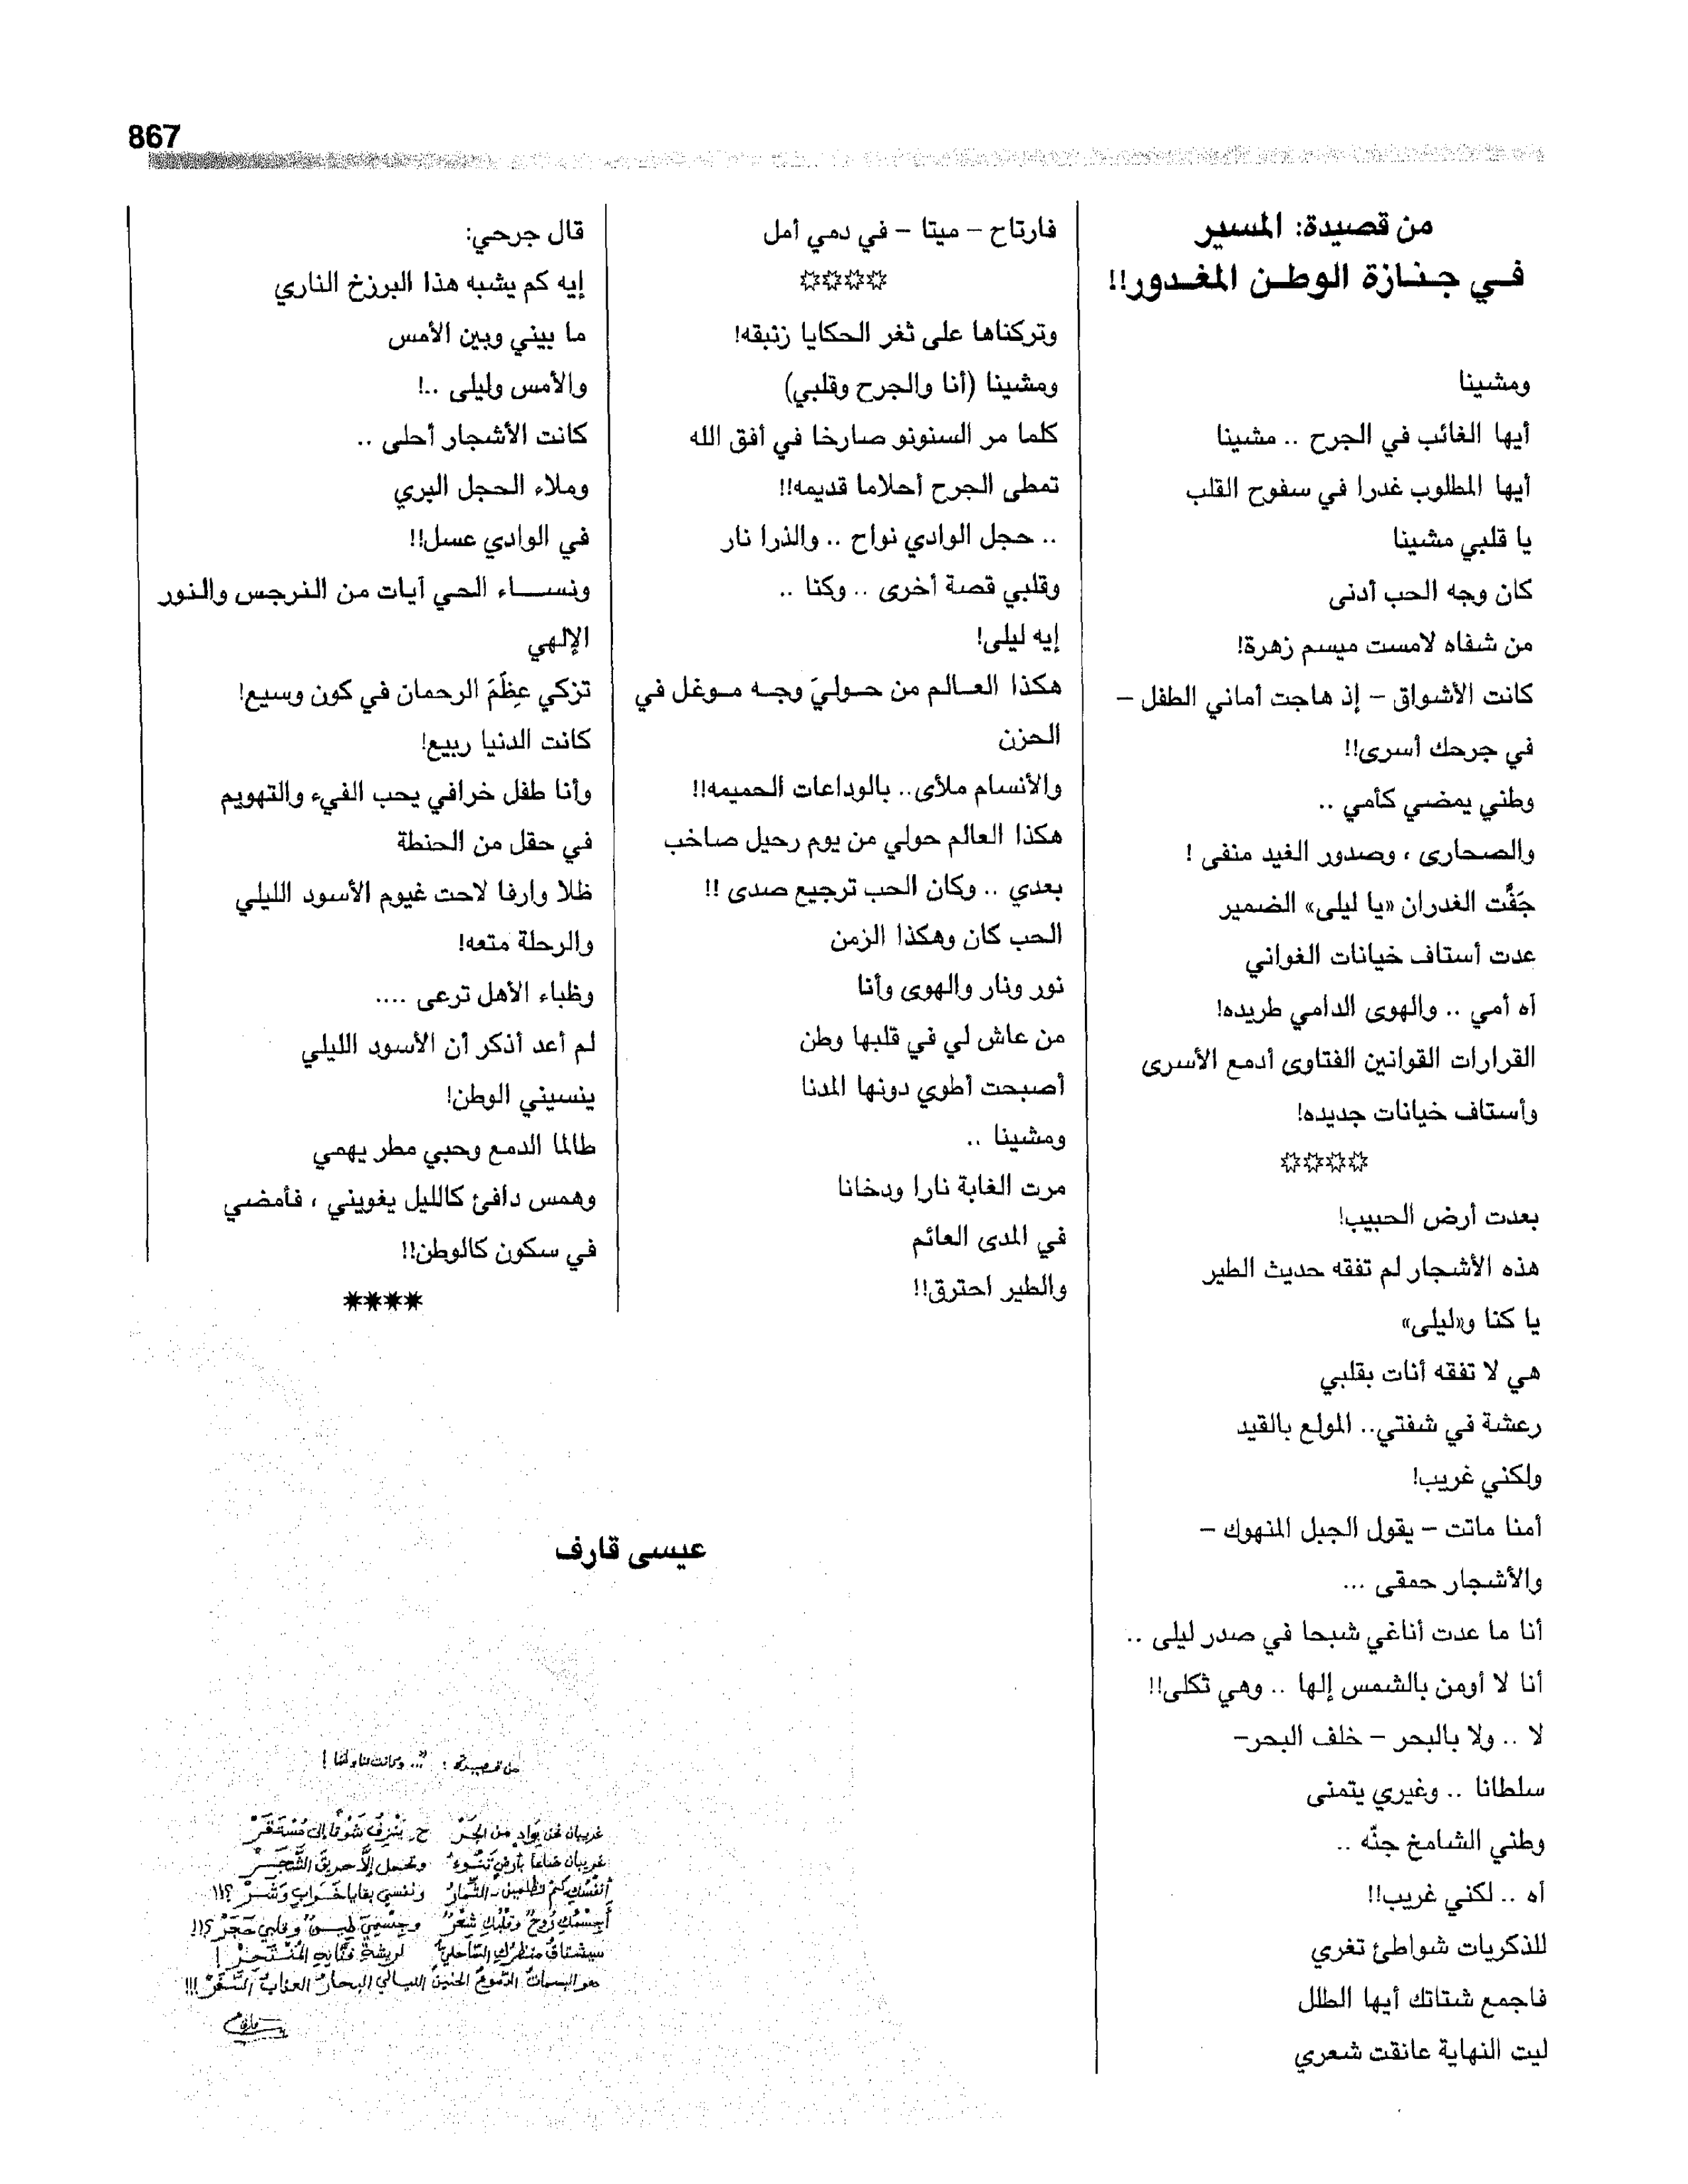 867
من قصيدة: المسير
في جنازة الوطن المغدور!!
ومشينا
أيها الغائب في الجرح .. مشينا
أيها المطلوب غدرا في سفوح القلب
يا قلبي مشينا
كان وجه الحب أدنى
من شفاه لامست ميسم زهرة!
كانت الأشواق – إذ هاجت أماني الطفل –
في جرحك أسرى!!
وطني يمضي كأمي ..
والصحارى ، وصدور الغيد منفى !
جَفَّت الغدران «يا ليلى» الضمير
عدت أستاف خيانات الغواني
آه أمي .. والهوى الدامي طريده!
القرارات القوانين الفتاوى أدمع الأسرى
وأستاف خيانات جديده!
****
بعدت أرض الحبيب!
هذه الأشجار لم تفقه حديث الطير
يا كنا و«ليلى»
هي لا تفقه أنات بقلبي
رعشة في شفتي.. المولع بالقيد
ولكني غريب!
أمنا ماتت – يقول الجبل المنهوك –
والأشجار حمقى ...
أنا ما عدت أناغي شبحا في صدر ليلى ..
أنا لا أومن بالشمس إلها .. وهي ثكلى!!
لا .. ولا بالبحر – خلف البحر–
سلطانا .. وغيري يتمنى
وطني الشامخ جنّه ..
آه .. لكني غريب!!
للذكريات شواطئ تغري
فاجمع شتاتك أيها الطلل
ليت النهاية عانقت شعري
فارتاح – ميتا – في دمي أمل
****
وتركناها على ثغر الحكايا زنبقه!
ومشينا (أنا والجرح وقلبي)
كلما مر السنونو صارخا في أفق الله
تمطى الجرح أحلاما قديمه!!
.. حجل الوادي نواح .. والذرا نار
وقلبي قصة أخرى .. وكنا ..
إيه ليلى!
هكذا العالم من حوليَ وجه موغل في
الحزن
والأنسام ملأى.. بالوداعات الحميمه!!
هكذا العالم حولي من يوم رحيل صاخب
بعدي .. وكان الحب ترجيع صدى !!
الحب كان وهكذا الزمن
نور ونار والهوى وأنا
من عاش لي في قلبها وطن
أصبحت أطوي دونها المدنا
ومشينا ..
مرت الغابة نارا ودخانا
في المدى العائم
والطير احترق!!
قال جرحي:
إيه كم يشبه هذا البرزخ الناري
ما بيني وبين الأمس
والأمس وليلى ..!
كانت الأشجار أحلى ..
وملاء الحجل البري
في الوادي عسل!!
ونساء الحي آيات من النرجس والنور
الإلهي
تزكي عِظَمَ الرحمان في كون وسيع!
كانت الدنيا ربيع!
وأنا طفل خرافي يحب الفيء والتهويم
في حقل من الحنطة
ظلا وارفا لاحت غيوم الأسود الليلي
والرحلة متعه!
وظباء الأهل ترعى ....
لم أعد أذكر أن الأسود الليلي
ينسيني الوطن!
طالما الدمع وحبي مطر يهمي
وهمس دافئ كالليل يغويني ، فأمضي
في سكون كالوطن!!
****
عيسى قارف
من قصيدة : "... وكانت لنا !
غريبان نحن بواد من الجَـرْ ح. ينزف شوقا إلى مُسْتَقَرْ
غريبان ضاعا بأرض تنُوءُ وتحمل إلَّا حريقَ الشَّجَرْ
ونَنسى بقايا خراب وشَرْ ؟!!
أجسْمُكِ رُوحٌ وقلْبُكِ شعْرٌ وجسْمِيَ طينٌ وقلبي حَجَرْ ؟!!
سيشتاقُ منظرُكِ السَّاحليُّ لريشةِ فنّانِهِ المُنْتَحِرْ !
هو البسمات الدّموع الحنين الليالي البحار العذاب السَّفَرْ !!!